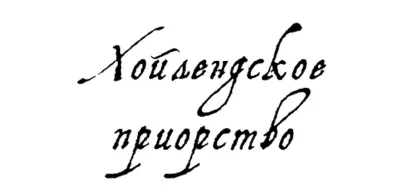 Хойлендское
приорство